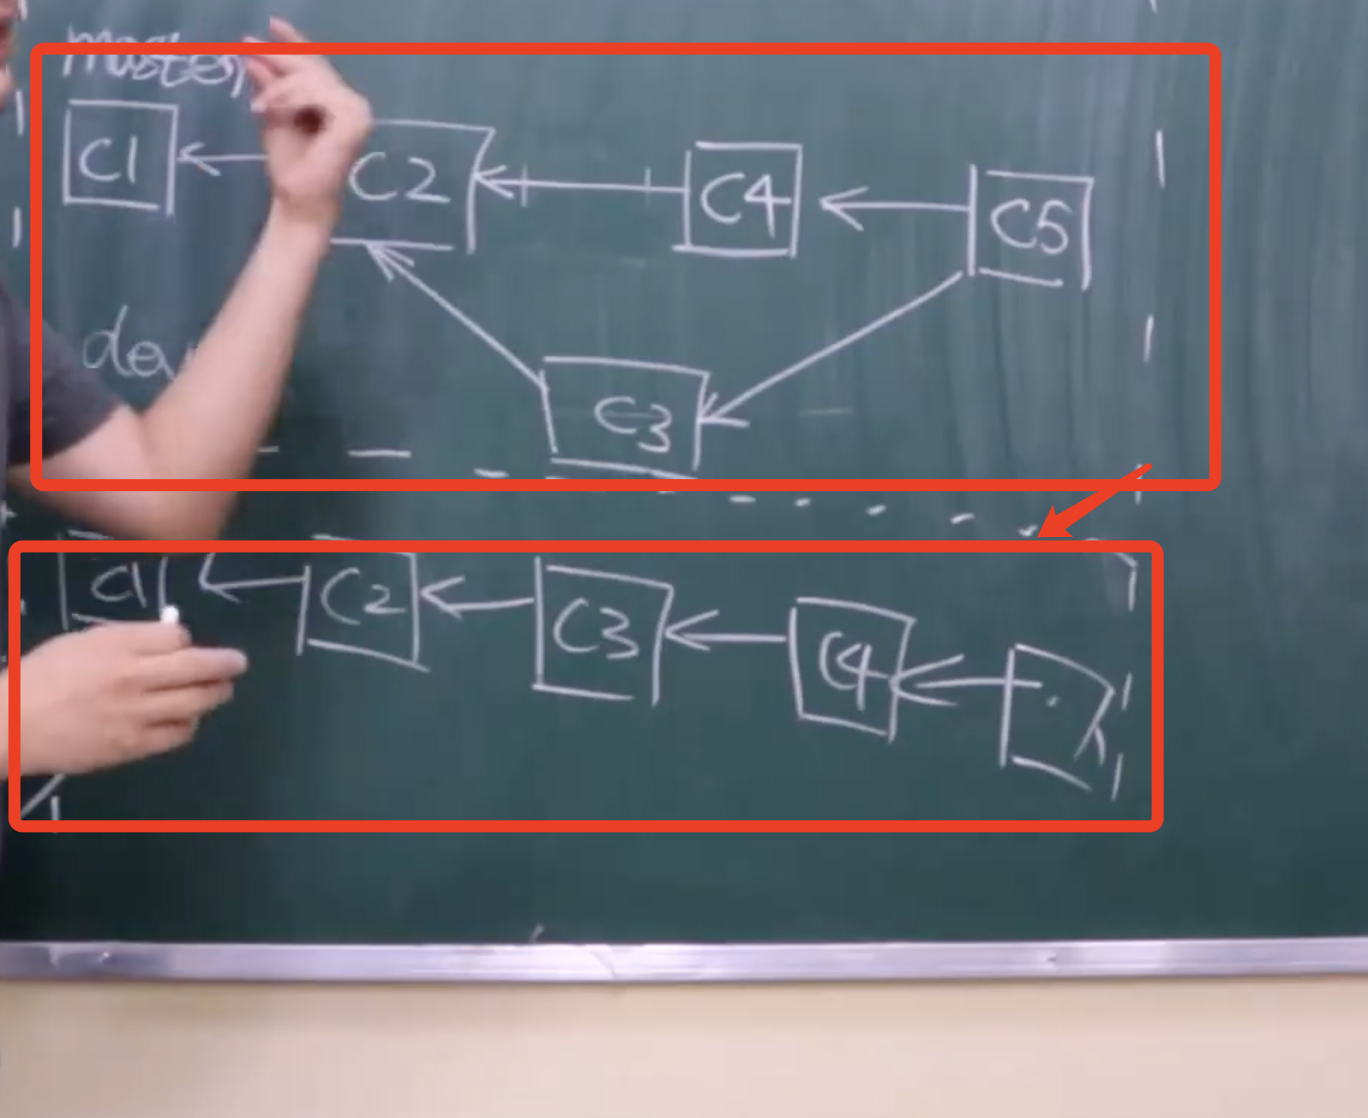 master
C1 C2 C4 C5
C3
C1 C2 C3 C4